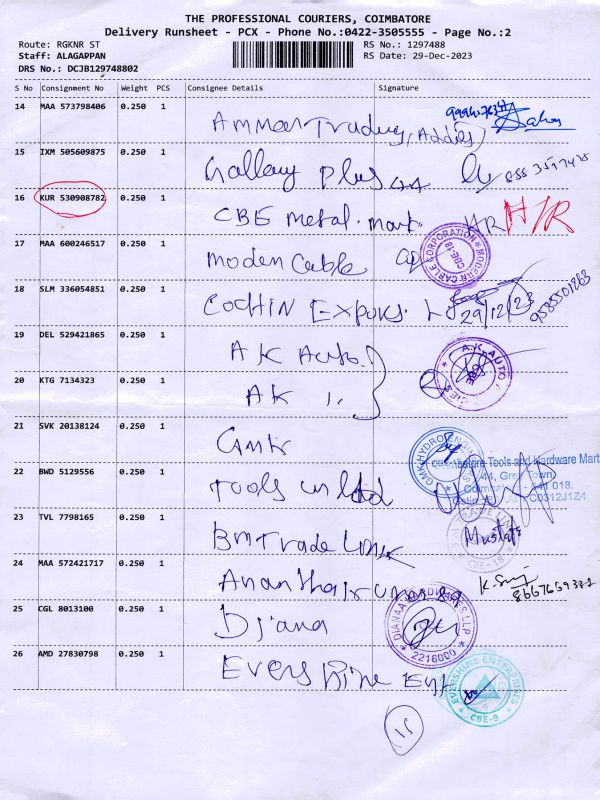 THE PROFESSIONAL COURIERS, COIMBATORE
Delivery Runsheet - PCX - Phone No.:0422-3505555 - Page No.:2
Route: RGKNR ST
RS No.: 1297488
Staff: ALAGAPPAN
RS Date: 29-Dec-2023
DRS No.: DCJB129748802
S No Consignment No Weight PCS Consignee Details Signature
14 MAA 573798406 0.250 1
15 IXM 505609875 0.250 1 Gallery Plus
16 KUR 530908782 0.250 1 CBE Metal. Mart HR H/R
17 MAA 600246517 0.250 1 Moden Cable
MODERN CABLE CORPORATION CBE-18
18 SLM 336054851 0.250 1 COCHIN 29/12/23 9585501263
19 DEL 529421865 0.250 1 AK Auto.
A.K. AUTO CBE
20 KTG 7134323 0.250 1 AK
21 SVK 20138124 0.250 1
22 BWD 5129556 0.250 1 Tools
Coimbatore Tools and Hardware Mart
23 TVL 7798165 0.250 1 BM Trade Link
CBE-18
24 MAA 572421717 0.250 1
25 CGL 8013100 0.250 1 Djana
DIANAA LLP 2216000
26 AMD 27830798 0.250 1 Evershine
EVERSHINE ENTERPRISES CBE-9
15